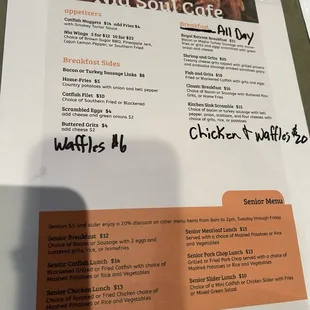 And Soul Cafe
appetizers
Catfish Nuggets $14 add Fries $4
with Smokey Tartar Sauce
Nia Wings 5 for $12 10 for $22
Choice of Brown Sugar BBQ, Pineapple Jerk,
Cajun Lemon Pepper, or Southern Fried
Breakfast Sides
Bacon or Turkey Sausage Links $8
Home-Fries $5
Country potatoes with onion and bell pepper
Catfish Filet $10
Choice of Southern Fried or Blackened
Scrambled Eggs $4
add cheese and green onions $2
Buttered Grits $4
add cheese $2
Waffles $6
Breakfast All Day
Royal Retreat Breakfast
Shrimp and Grits
Fish and Grits $18
Fried or Blackened Catfish with grits and eggs
Classic Breakfast $16
Choice of Bacon or Sausage with Buttered
Grits, or Home Fries
Kitchen Sink Scramble $15
Chicken & Waffles $20
Senior Menu
Seniors 55 and older enjoy a 20% discount on other menu items from 8am to 2pm, Tuesday through Friday
Senior Breakfast $12
Choice of Bacon or Sausage with 2 eggs and
buttered grits, rice, or homefries
Senior Catfish Lunch $14
Blackened Grilled or Fried Catfish with choice of
Mashed Potatoes or Rice and Vegetables
Senior Chicken Lunch $13
Choice of Roasted or Fried Chicken choice of
Mashed Potatoes or Rice and Vegetables
Senior Meatloaf Lunch $15
Served with s choice of Mashed Potatoes or Rice
and Vegetables
Senior Pork Chop Lunch $13
Grilled or Fried Pork Chop served with a choice
of Mashed Potatoes or Rice and Vegetables
Senior Slider Lunch $10
Choice of a Mini Catfish or Chicken Slider with Fries
or Mixed Green Salad